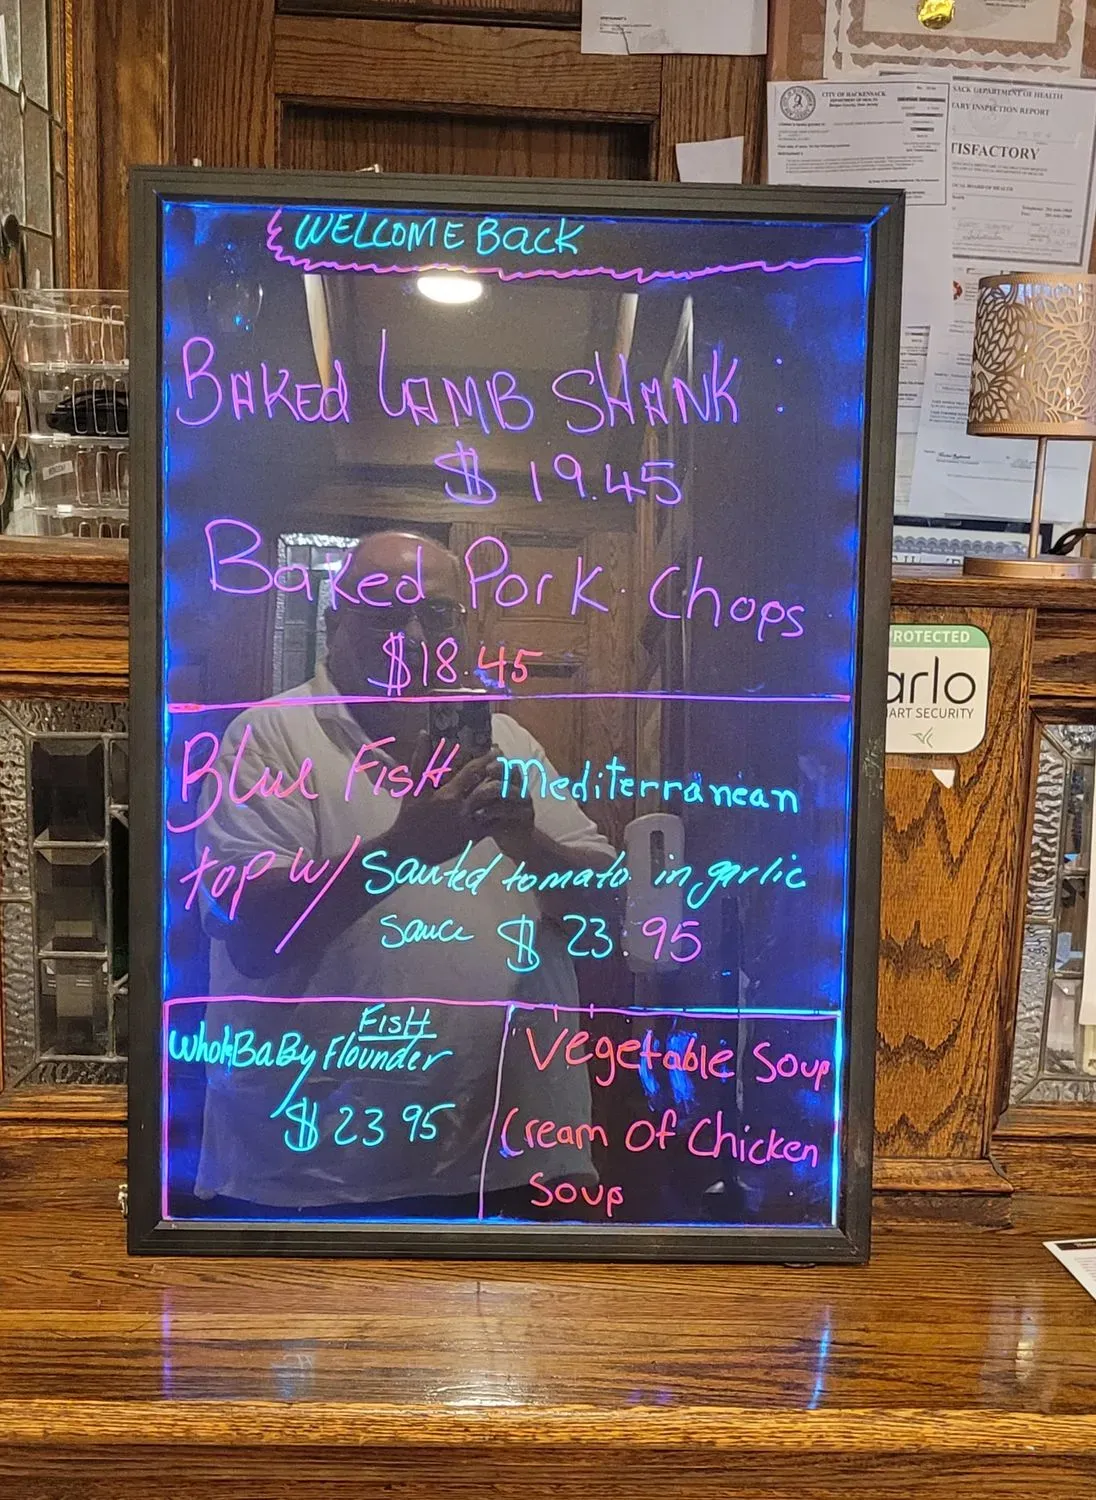 WELCOME BACK
BAKED LAMB SHANK :
$ 19.45
Baked Pork Chops
$18.45
Blue FISH Mediterranean
top w/ Sauted tomato in garlic
sauce $ 23.95
FISH
Whole BaBy Flounder
$ 23 95
Vegetable Soup
Cream Of Chicken
Soup
CITY OF HACKENSACK
DEPARTMENT OF HEALTH
SACK DEPARTMENT OF HEALTH
TARY INSPECTION REPORT
TISFACTORY
LOCAL BOARD OF HEALTH
PROTECTED
arlo
ART SECURITY